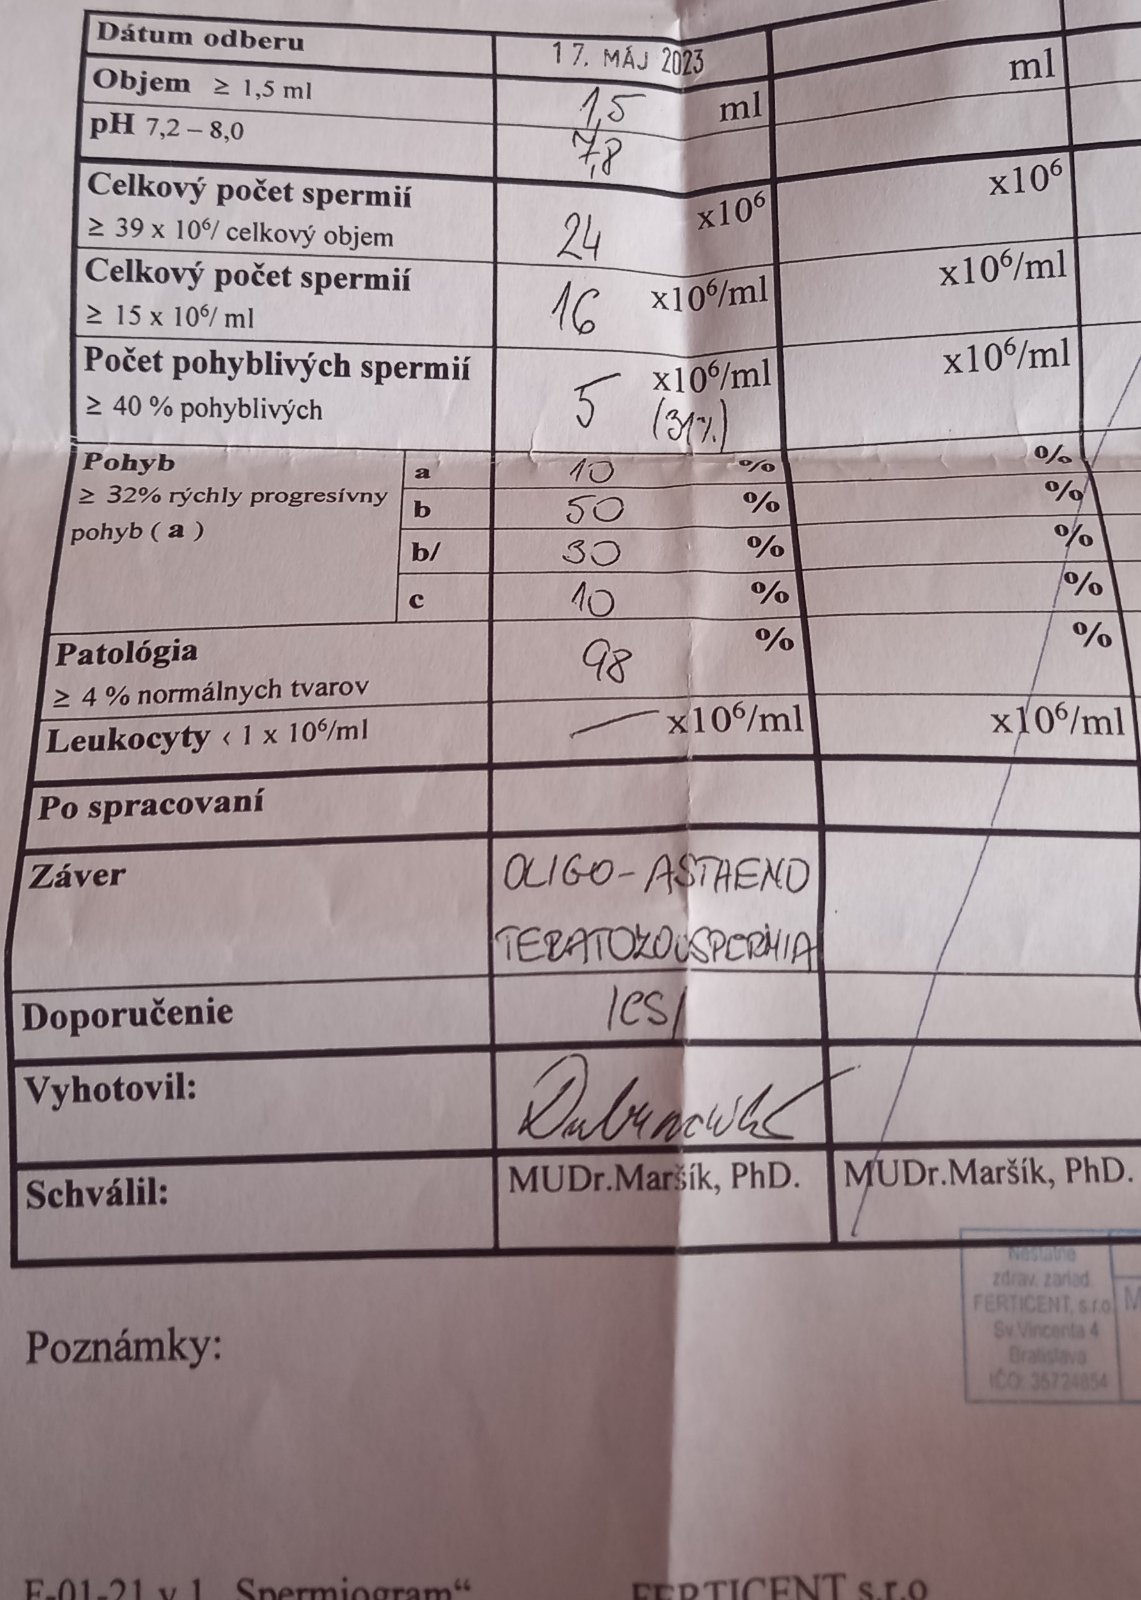 Dátum odberu 17. MÁJ 2023
Objem ≥ 1,5 ml 1,5 ml ml
pH 7,2 – 8,0 7,8
Celkový počet spermií x10⁶ x10⁶
≥ 39 x 10⁶/ celkový objem 24
Celkový počet spermií x10⁶/ml x10⁶/ml
≥ 15 x 10⁶/ ml 16
Počet pohyblivých spermií x10⁶/ml x10⁶/ml
≥ 40 % pohyblivých 5 (31%)
Pohyb a 10 % %
≥ 32% rýchly progresívny b 50 % %
pohyb ( a ) b/ 30 % %
c 10 % %
Patológia 98 % %
≥ 4 % normálnych tvarov
Leukocyty < 1 x 10⁶/ml — x10⁶/ml x10⁶/ml
Po spracovaní
Záver OLIGO-ASTHENO
TERATOZOOSPERMIA
Doporučenie ICSI
Vyhotovil:
Schválil: MUDr.Maršík, PhD. MUDr.Maršík, PhD.
Neštátne
zdrav. zariad.
FERTICENT, s.r.o.
Sv.Vincenta 4
Bratislava
IČO: 35724854
Poznámky:
F-01-21 v 1 Spermiogram“ FERTICENT s.r.o